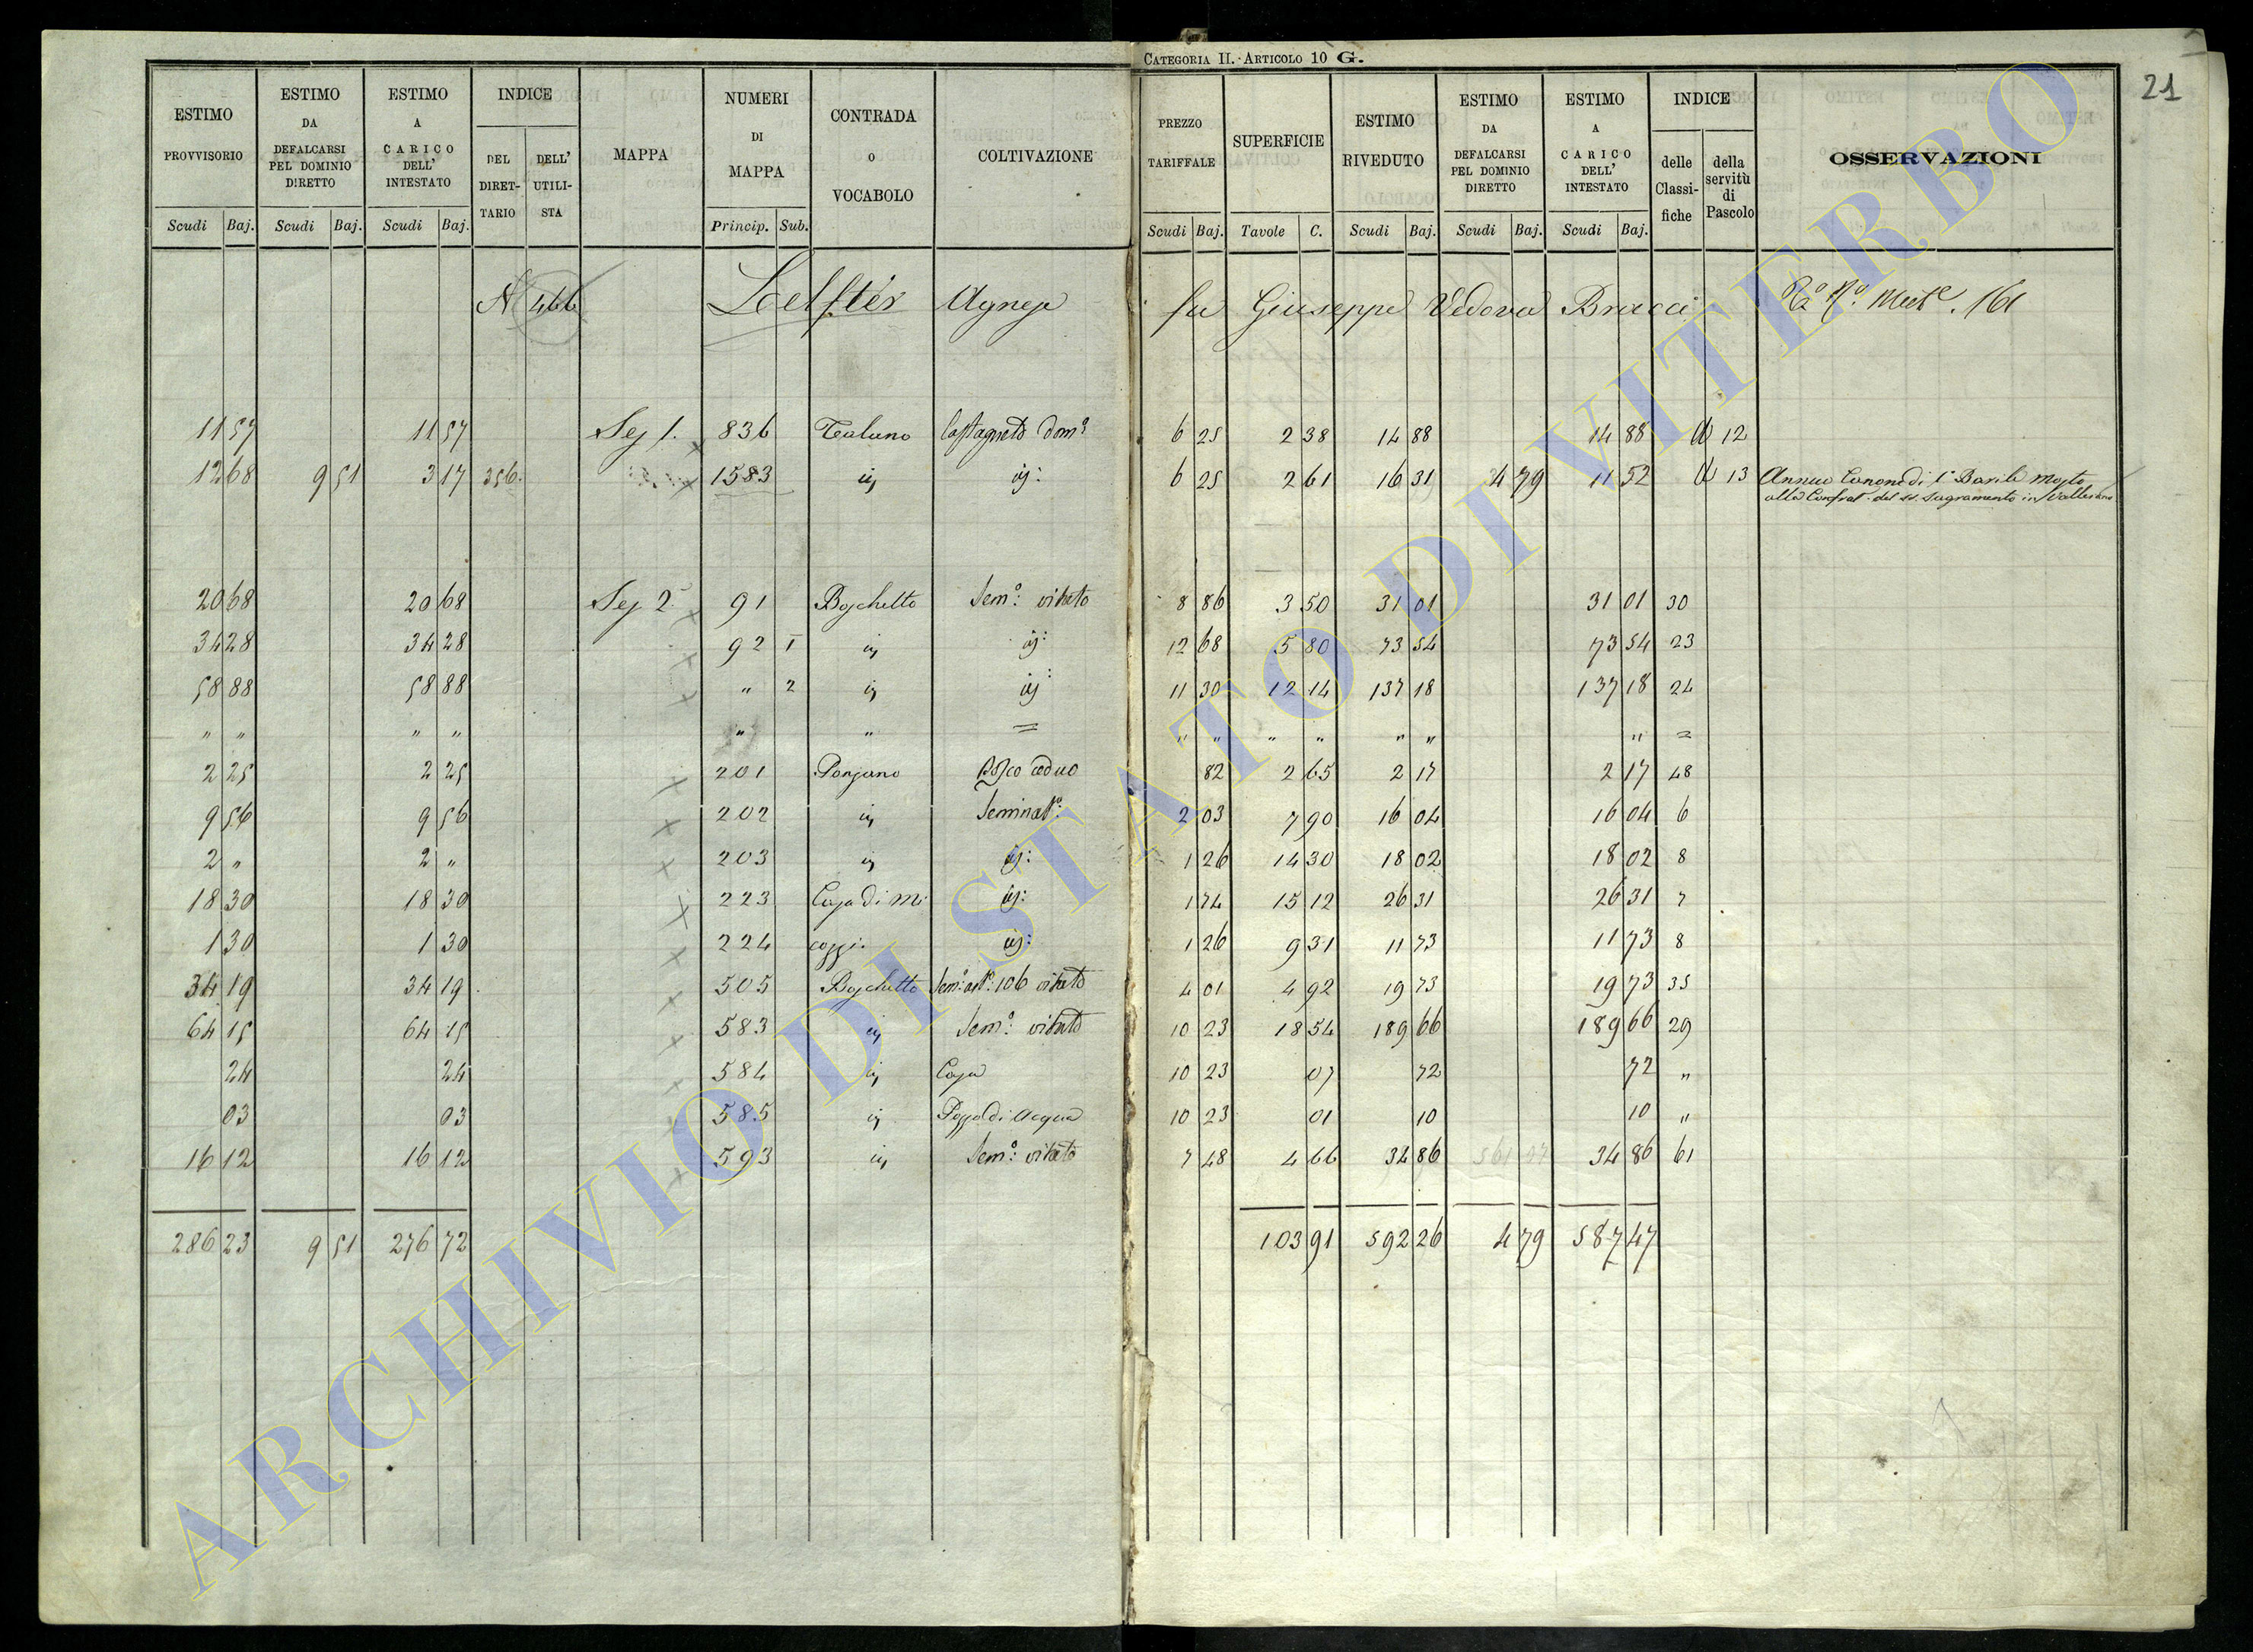 CATEGORIA II. ARTICOLO 10 G.
21
ESTIMO PROVVISORIO | ESTIMO DA DEFALCARSI PEL DOMINIO DIRETTO | ESTIMO A CARICO DELL' INTESTATO | INDICE DEL DIRETTARIO | DELL' UTILISTA | MAPPA | NUMERI DI MAPPA | CONTRADA O VOCABOLO | COLTIVAZIONE | PREZZO TARIFFALE | SUPERFICIE | ESTIMO RIVEDUTO | ESTIMO DA DEFALCARSI PEL DOMINIO DIRETTO | ESTIMO A CARICO DELL' INTESTATO | INDICE delle Classifiche | della servitù di Pascolo | OSSERVAZIONI
Scudi Baj. | Scudi Baj. | Scudi Baj. | Princip. Sub. | Scudi Baj. | Tavole C. | Scudi Baj. | Scudi Baj. | Scudi Baj.
N 466 Agnese fu Giuseppe Vedova Bracci 161
11 57 | 11 57 | Sez 1. | 836 | Castagneto dom.o | 6 25 | 2 38 | 14 88 | 14 88 | 12
12 68 | 9 51 | 3 17 | 356. | 1583 | id | id: | 6 25 | 2 61 | 16 31 | 4 79 | 11 52 | 13 | Annuo Canone di 1 Barile Mosto
alla Confrat. del SS. Sagramento in Vallerano
20 68 | 20 68 | Sez 2. | 91 | Boschetto | Sem.o: vitato | 8 86 | 3 50 | 31 01 | 31 01 | 30
34 28 | 34 28 | 92 1 | id | id: | 12 68 | 5 80 | 73 54 | 73 54 | 23
58 88 | 58 88 | " 2 | id | id: | 11 30 | 12 14 | 137 18 | 137 18 | 24
" " | " " | " | " | = | " " | " " | " " | " | =
2 25 | 2 25 | 201 | Ponzano | Bosco ceduo | 82 | 2 65 | 2 17 | 2 17 | 48
9 56 | 9 56 | 202 | id | Seminat.o: | 2 03 | 7 90 | 16 04 | 16 04 | 6
2 " | 2 " | 203 | id | id: | 1 26 | 14 30 | 18 02 | 18 02 | 8
18 30 | 18 30 | 223 | Casa di Mi | id: | 1 74 | 15 12 | 26 31 | 26 31 | 7
1 30 | 1 30 | 224 | cozzi. | id: | 1 26 | 9 31 | 11 73 | 11 73 | 8
34 19 | 34 19 | 505 | Boschetto | vitato | 4 01 | 4 92 | 19 73 | 19 73 | 35
64 15 | 64 15 | 583 | id | Sem.o: vitato | 10 23 | 18 54 | 189 66 | 189 66 | 29
24 | 24 | 584 | id | Casa | 10 23 | 07 | 72 | 72 | "
03 | 03 | 585 | id | Pozzo di acqua | 10 23 | 01 | 10 | 10 | "
16 12 | 16 12 | 593 | id | Sem.o: vitato | 7 48 | 4 66 | 34 86 | 34 86 | 61
286 23 | 9 51 | 276 72 | 103 91 | 592 26 | 4 79 | 587 47
ARCHIVIO DI STATO DI VITERBO